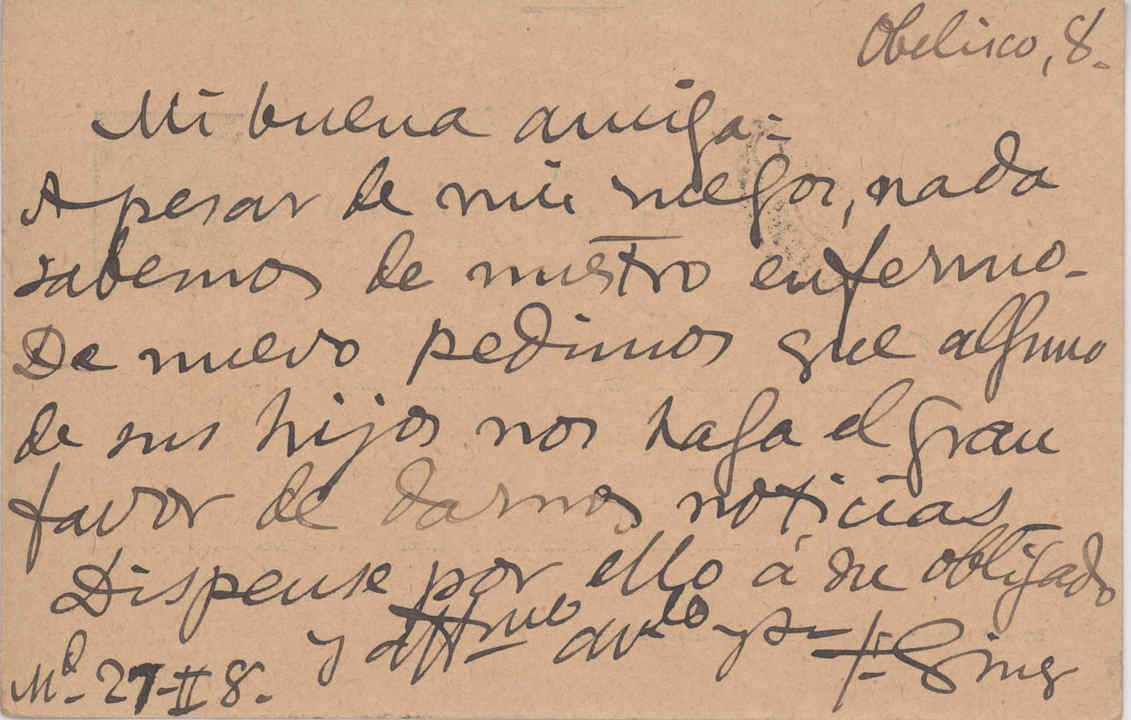 Obelisco, 8.-
Mi buena amiga:-
A pesar de mis ruegos, nada
sabemos de nuestro enfermo-
De nuevo pedimos que alguno
de sus hijos nos haga el gran
favor de darnos noticias
Dispense por ello á su obligado
y affmo F. Giner
Md.- 27-II-8.